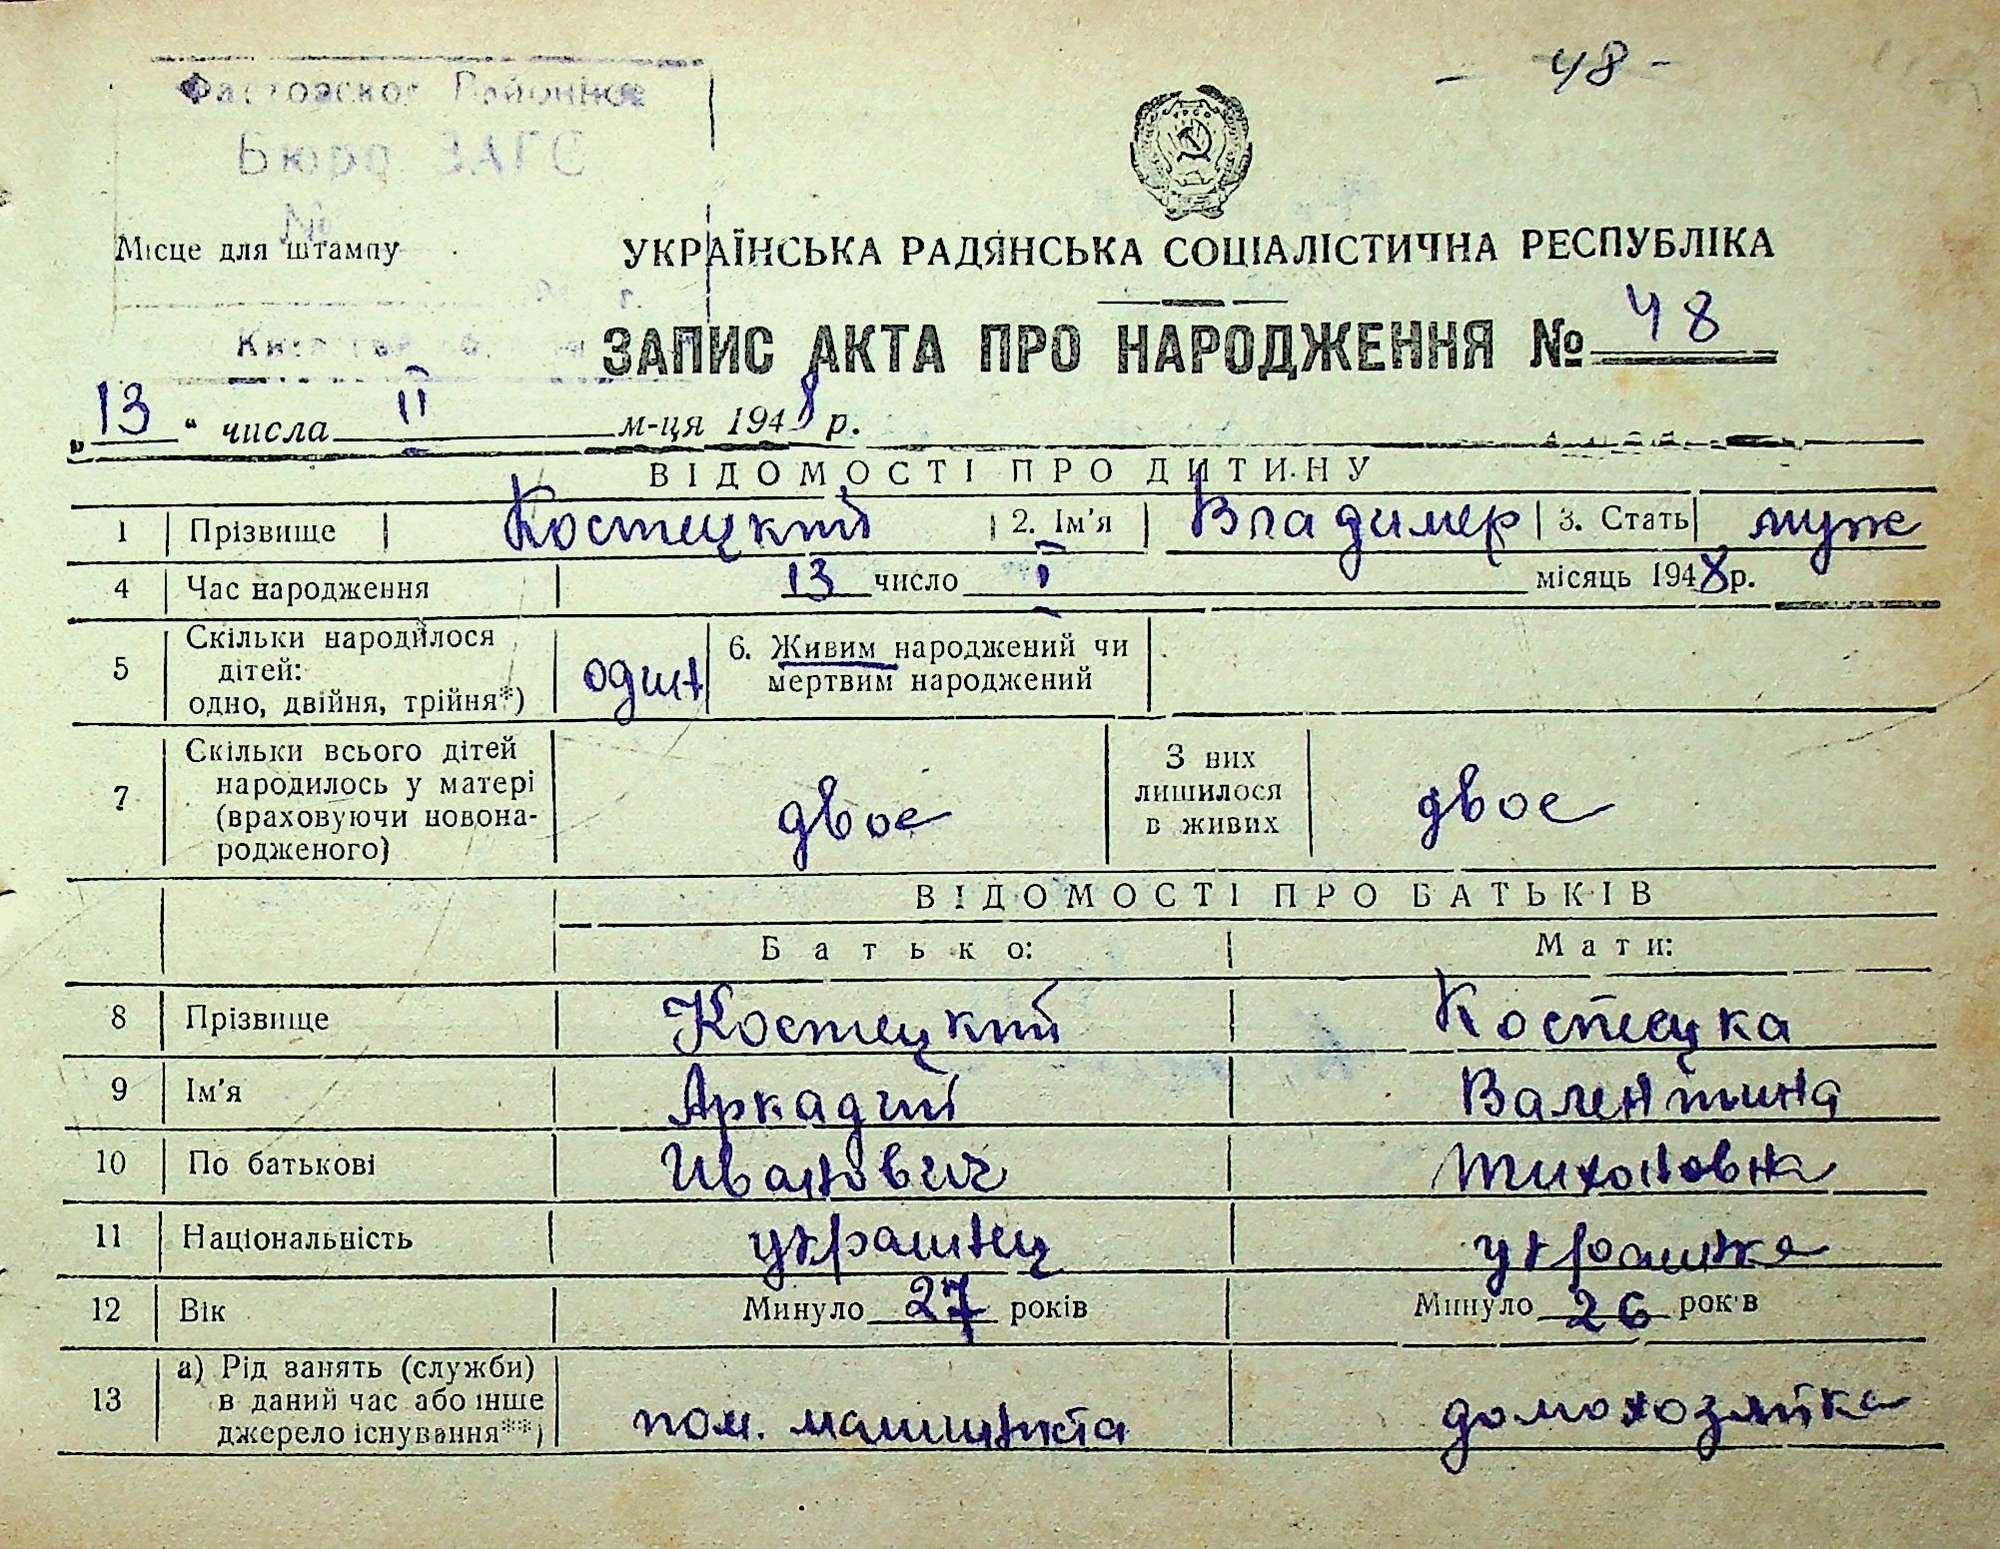 - 48 -
Фастовское Районное
Бюро ЗАГС
№
Місце для штампу
г.
УКРАЇНСЬКА РАДЯНСЬКА СОЦІАЛІСТИЧНА РЕСПУБЛІКА
ЗАПИС АКТА ПРО НАРОДЖЕННЯ № 48
„13“ числа II м-ця 1948 р.
ВІДОМОСТІ ПРО ДИТИНУ
1 Прізвище Костецкий 2. Ім'я Владимер 3. Стать муж
4 Час народження 13 число I місяць 1948 р.
5 Скільки народилося дітей: одно, двійня, трійня*) один 6. Живим народжений чи мертвим народжений
7 Скільки всього дітей народилось у матері (враховуючи новонародженого) двое З них лишилося в живих двое
ВІДОМОСТІ ПРО БАТЬКІВ
Батько: Мати:
8 Прізвище Костецкий Костецка
9 Ім'я Аркадий Валентина
10 По батькові Иванович Тихоновна
11 Національність украинец украинка
12 Вік Минуло 27 років Минуло 26 років
13 а) Рід занять (служби) в даний час або інше джерело існування**) пом. машиниста домохозяйка